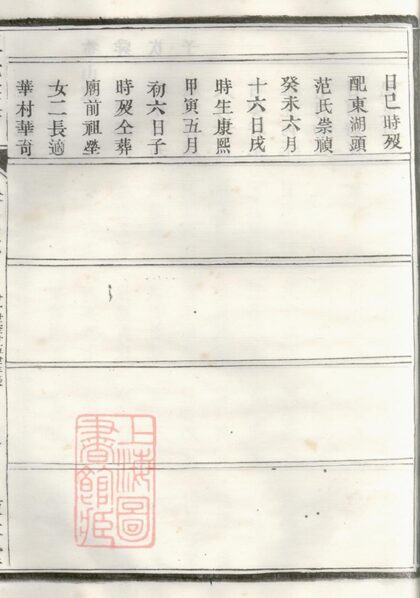 日巳時歿
配東湖頭
范氏崇禎
癸未六月
十六日戌
時生康熙
甲寅五月
初六日子
時歿仝葬
廟前祖塋
女二長適
華村華奇
上海圖
書館藏